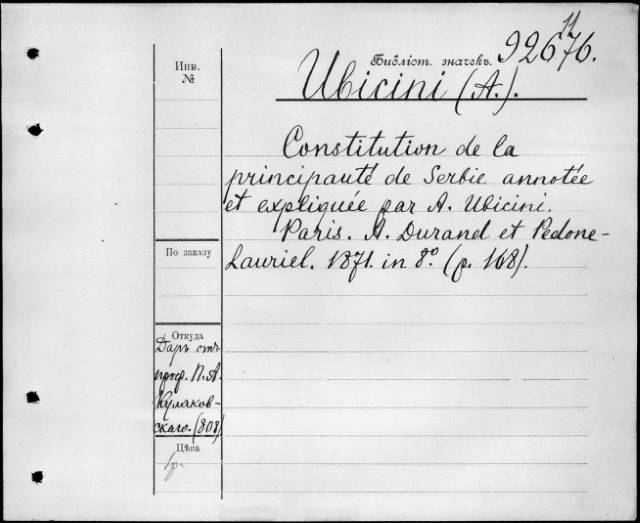 Библіот. значекъ. 92676.
11
Инв.
№
Ubicini (A.).
Constitution de la
principauté de Serbie annotée
et expliquée par A. Ubicini.
Paris. A. Durand et Pedone-
Lauriel. 1871. in 8º. (p. 168).
По заказу
Откуда
Даръ отъ
проф. П. А.
Кулаков-
скаго. (808)
Цѣна